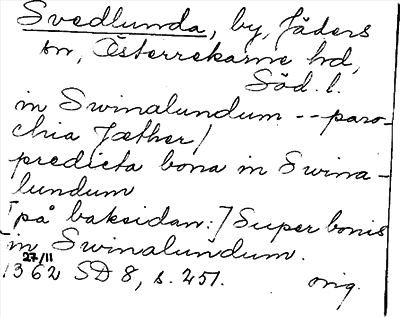 Svedlunda, by, Jäders
sn, Österrekarne hd,
Söd. l.
in Swinalundum -- paro-
chia Jæther/
predicta bona in Swina-
lundum
[på baksidan:] Super bonis
in Swinalundum.
1362 27/11 SD 8, s. 251. orig.